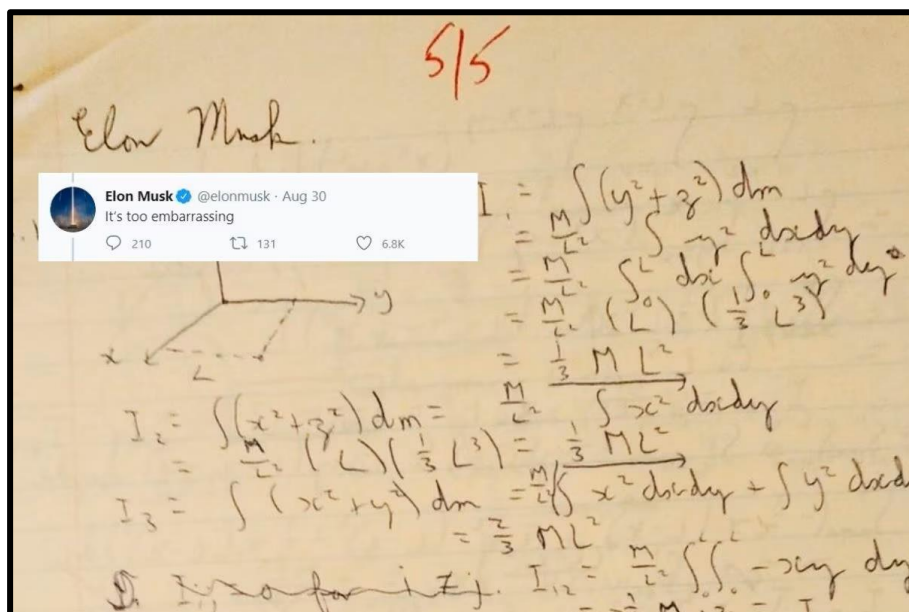 5/5
Elon Musk.
Elon Musk @elonmusk · Aug 30
It's too embarrassing
210 131 6.8K
I₁ = ∫(y²+z²) dm
= M/L² ∫ y² dxdy
= M/L² ∫₀ᴸ dx ∫₀ᴸ y² dy
= M/L² (L) (1/3 L³)
= 1/3 ML²
y
x
L
I₂ = ∫(x²+z²) dm = M/L² ∫ x² dxdy
= M/L² (L)(1/3 L³) = 1/3 ML²
I₃ = ∫(x²+y²) dm = M/L² ∫ x² dxdy + ∫ y² dxd
= 2/3 ML²
I₁₂ = M/L² ∫₀ᴸ∫₀ᴸ -xy dy